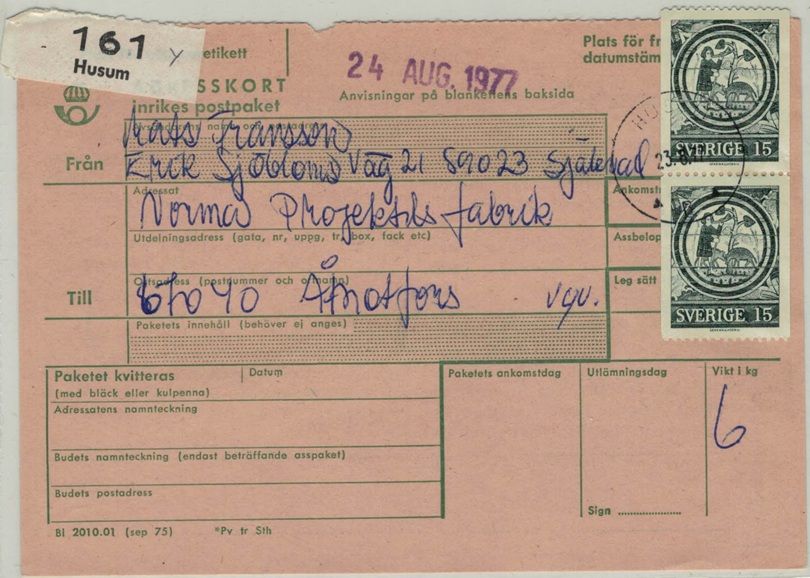 161
Husum
etikett
24 AUG. 1977
Plats för fr
datumstäm
ADRESSKORT
inrikes postpaket
Anvisningar på blankettens baksida
Från
Mats Fransson
Erik Sjöbloms Väg 21 89023 Själevad
Adressat
Ankomst
Norma Projektilfabrik
Utdelningsadress (gata, nr, uppg, tr, box, fack etc)
Assbelop
Till
Ortsadress (postnummer och ortnamn)
Leg sätt
67040 Åmotfors vgv.
Pakètets innehåll (behöver ej anges)
SVERIGE 15
23.8.
SVERIGE 15
Paketet kvitteras
(med bläck eller kulpenna)
Datum
Paketets ankomstdag
Utlämningsdag
Vikt i kg
Adressatens namnteckning
6
Budets namnteckning (endast beträffande asspaket)
Budets postadress
Sign
Bl 2010.01 (sep 75) *Pv tr Sth